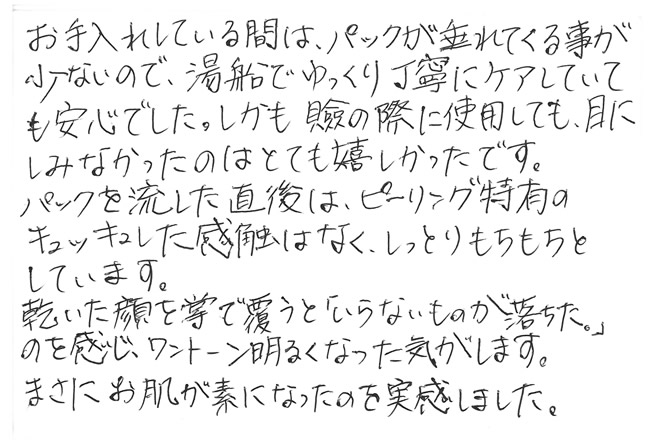 お手入れしている間は、パックが垂れてくる事が
少ないので、湯船でゆっくり丁寧にケアしていて
も安心でした。しかも瞼の際に使用しても、目に
しみなかったのはとても嬉しかったです。
パックを流した直後は、ピーリング特有の
キュッキュした感触はなく、しっとりもちもちと
しています。
乾いた顔を掌で覆うと「いらないものが落ちた。」
のを感じ、ワントーン明るくなった気がします。
まさにお肌が素になったのを実感しました。